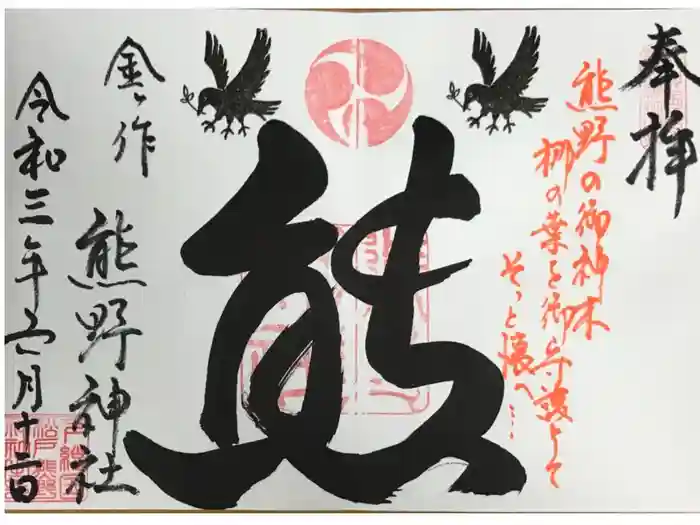 奉拝
熊野の御神木
梛の葉を御守護として
そっと懐へ……
熊
金ヶ作
熊野神社
令和三年六月十二日